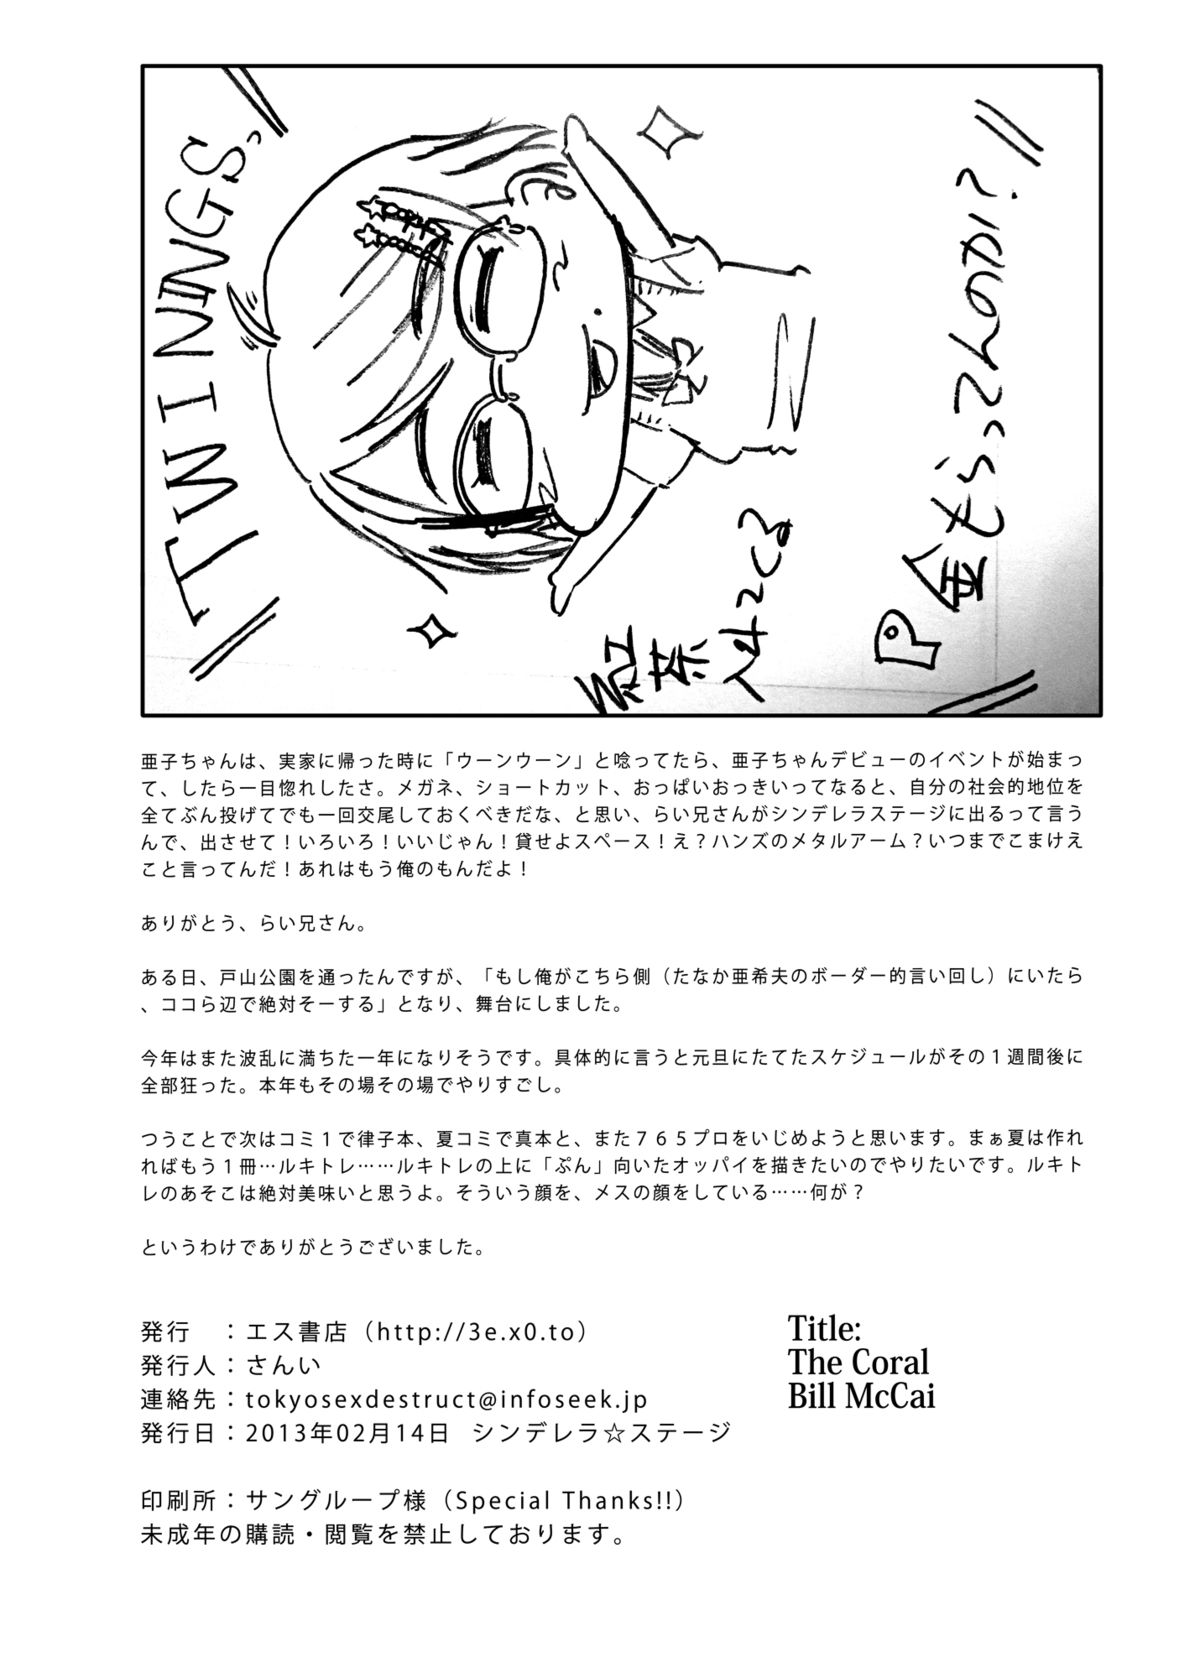 TWINGS
P金もらってんのか?
亜子ちゃんは、実家に帰った時に「ウーンウーン」と唸ってたら、亜子ちゃんデビューのイベントが始まっ
て、したら一目惚れしたさ。メガネ、ショートカット、おっぱいおっきいってなると、自分の社会的地位を
全てぶん投げてでも一回交尾しておくべきだな、と思い、らい兄さんがシンデレラステージに出るって言う
んで、出させて!いろいろ!いいじゃん!貸せよスペース!え?ハンズのメタルアーム?いつまでこまけえ
こと言ってんだ!あれはもう俺のもんだよ!
ありがとう、らい兄さん。
ある日、戸山公園を通ったんですが、「もし俺がこちら側(たなか亜希夫のボーダー的言い回し)にいたら
、ココら辺で絶対そーする」となり、舞台にしました。
今年はまた波乱に満ちた一年になりそうです。具体的に言うと元旦にたてたスケジュールがその1週間後に
全部狂った。本年もその場その場でやりすごし。
つうことで次はコミ1で律子本、夏コミで真本と、また765プロをいじめようと思います。まぁ夏は作れ
ればもう1冊…ルキトレ……ルキトレの上に「ぷん」向いたオッパイを描きたいのでやりたいです。ルキト
レのあそこは絶対美味いと思うよ。そういう顔を、メスの顔をしている……何が?
というわけでありがとうございました。
発行 :エス書店(http://3e.x0.to)
発行人:さんい
連絡先:tokyosexdestruct@infoseek.jp
発行日:2013年02月14日 シンデレラ☆ステージ
印刷所:サングループ様(Special Thanks!!)
未成年の購読・閲覧を禁止しております。
Title:
The Coral
Bill McCai